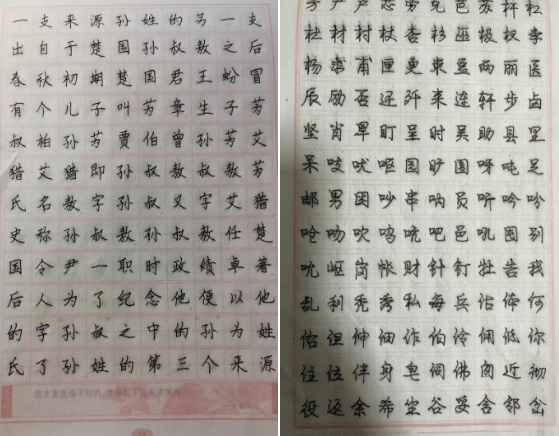 一支来源孙姓的另一支
出自于楚国孙叔敖之后
春秋初期楚国君王蚡冒
有个儿子叫芳章生子芳
叔柏孙芳贾伯曾孙芳艾
猎艾猎即孙叔敖叔敖芳
氏名敖字孙叔又字艾猎
史称孙叔敖孙叔敖任楚
国令尹一职时政绩卓著
后人为了纪念他便以他
的字孙叔之中的孙为姓
氏了孙姓的第三个来源
芭苏杆杠
杜材村杖杏杉巫极权李
杨求甫匣更束豆两丽医
辰励否还歼来连轩步卤
坚肖旱盯呈时吴助县里
呆吱吠呕园旷围呀吨足
邮男困吵串呐员听吟吩
呛吻吹呜吭吧邑吼囤别
吮岖岗帐财针钉牡告我
乱利秃秀私每兵估体何
佑但伸佃作伯伶佣低你
住位伴身皂伺佛囱近彻
役返余希坐谷妥含邻岔